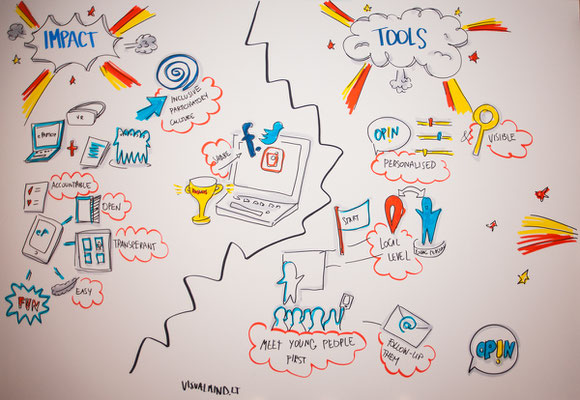 IMPACT
VR
INCLUSIVE
PARTICIPATORY
CULTURE
ACCOUNTABLE
OPEN
TRANSPERANT
FUN
EASY
SHARE
f
TOOLS
OPIN
& VISIBLE
PERSONALISED
START
LOCAL
LEVEL
MEET YOUNG PEOPLE
FIRST
@
FOLLOW-UP
THEM
OP!N
VISUALMIND.LT